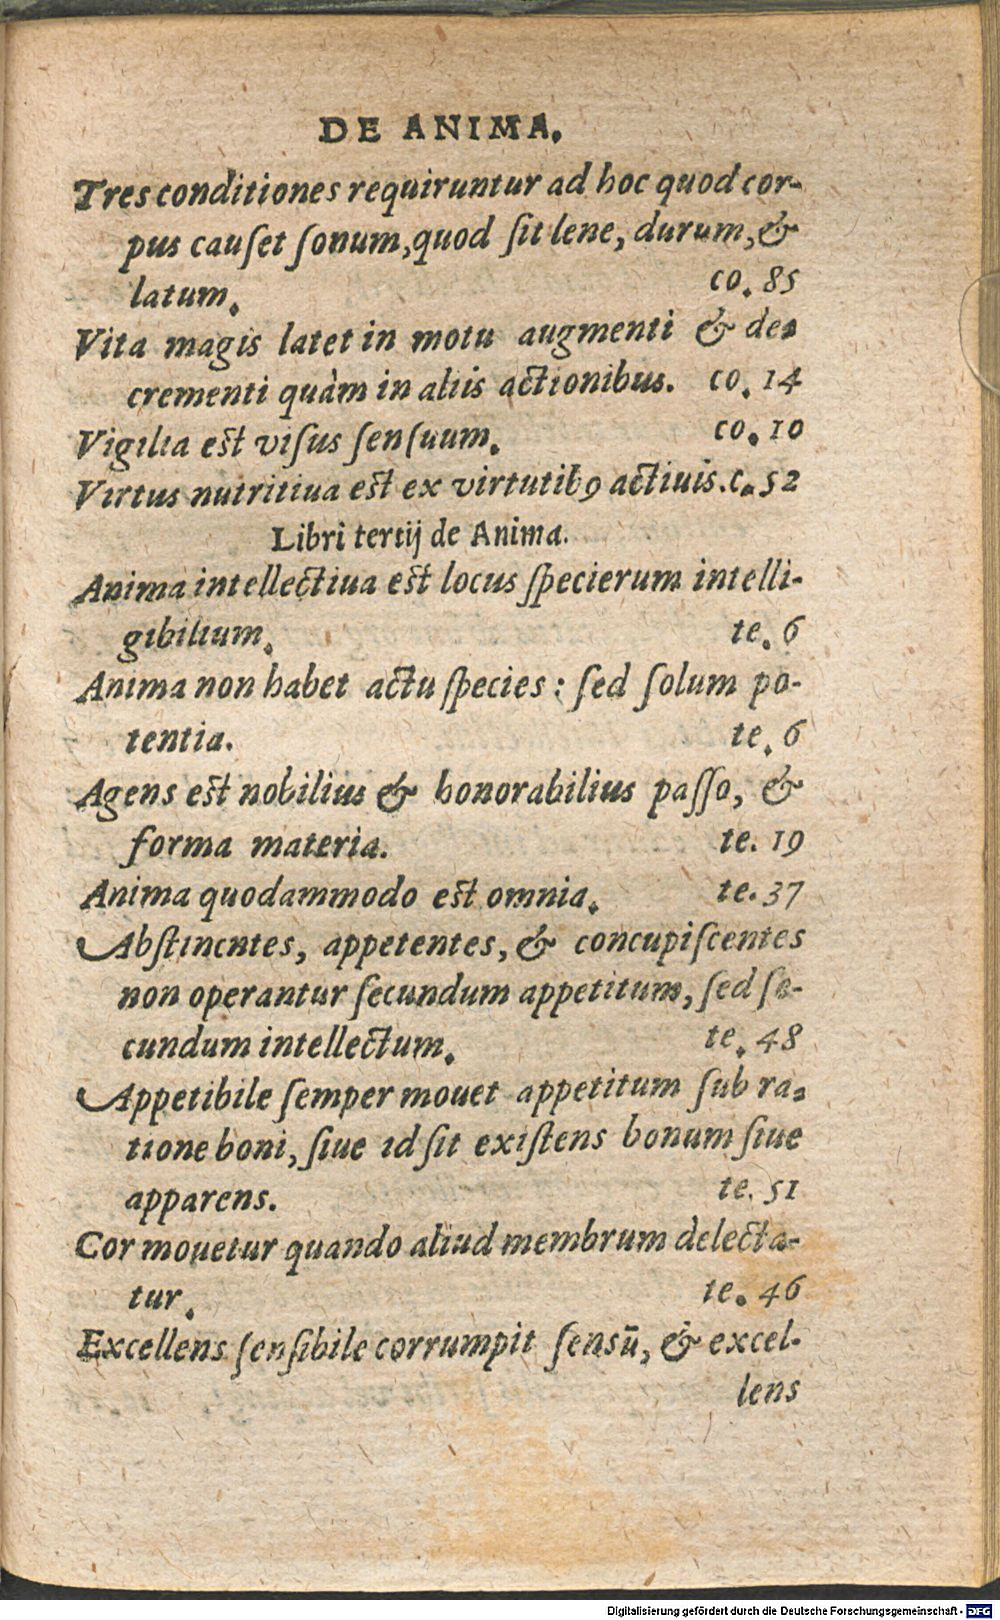 DE ANIMA.
Tres conditiones requiruntur ad hoc quod cor-
pus cauſet ſonum, quod ſit lene, durum, &
latum. co. 85
Vita magis latet in motu augmenti & de-
crementi quàm in aliis actionibus. co. 14
Vigilia est viſus ſenſuum. co. 10
Virtus nutritiua est ex virtutibꝰ actiuis. c. 52
Libri tertij de Anima.
Anima intellectiua est locus ſpecierum intelli-
gibilium. te. 6
Anima non habet actu ſpecies : ſed ſolum po-
tentia. te. 6
Agens est nobilius & honorabilius paſſo, &
forma materia. te. 19
Anima quodammodo est omnia. te. 37
Abſtinentes, appetentes, & concupiſcentes
non operantur ſecundum appetitum, ſed ſe-
cundum intellectum. te. 48
Appetibile ſemper mouet appetitum ſub ra-
tione boni, ſiue id ſit exiſtens bonum ſiue
apparens. te. 51
Cor mouetur quando aliud membrum delecta-
tur. te. 46
Excellens ſenſibile corrumpit ſensū, & excel-
lens
Digitalisierung gefördert durch die Deutsche Forschungsgemeinschaft - DFG